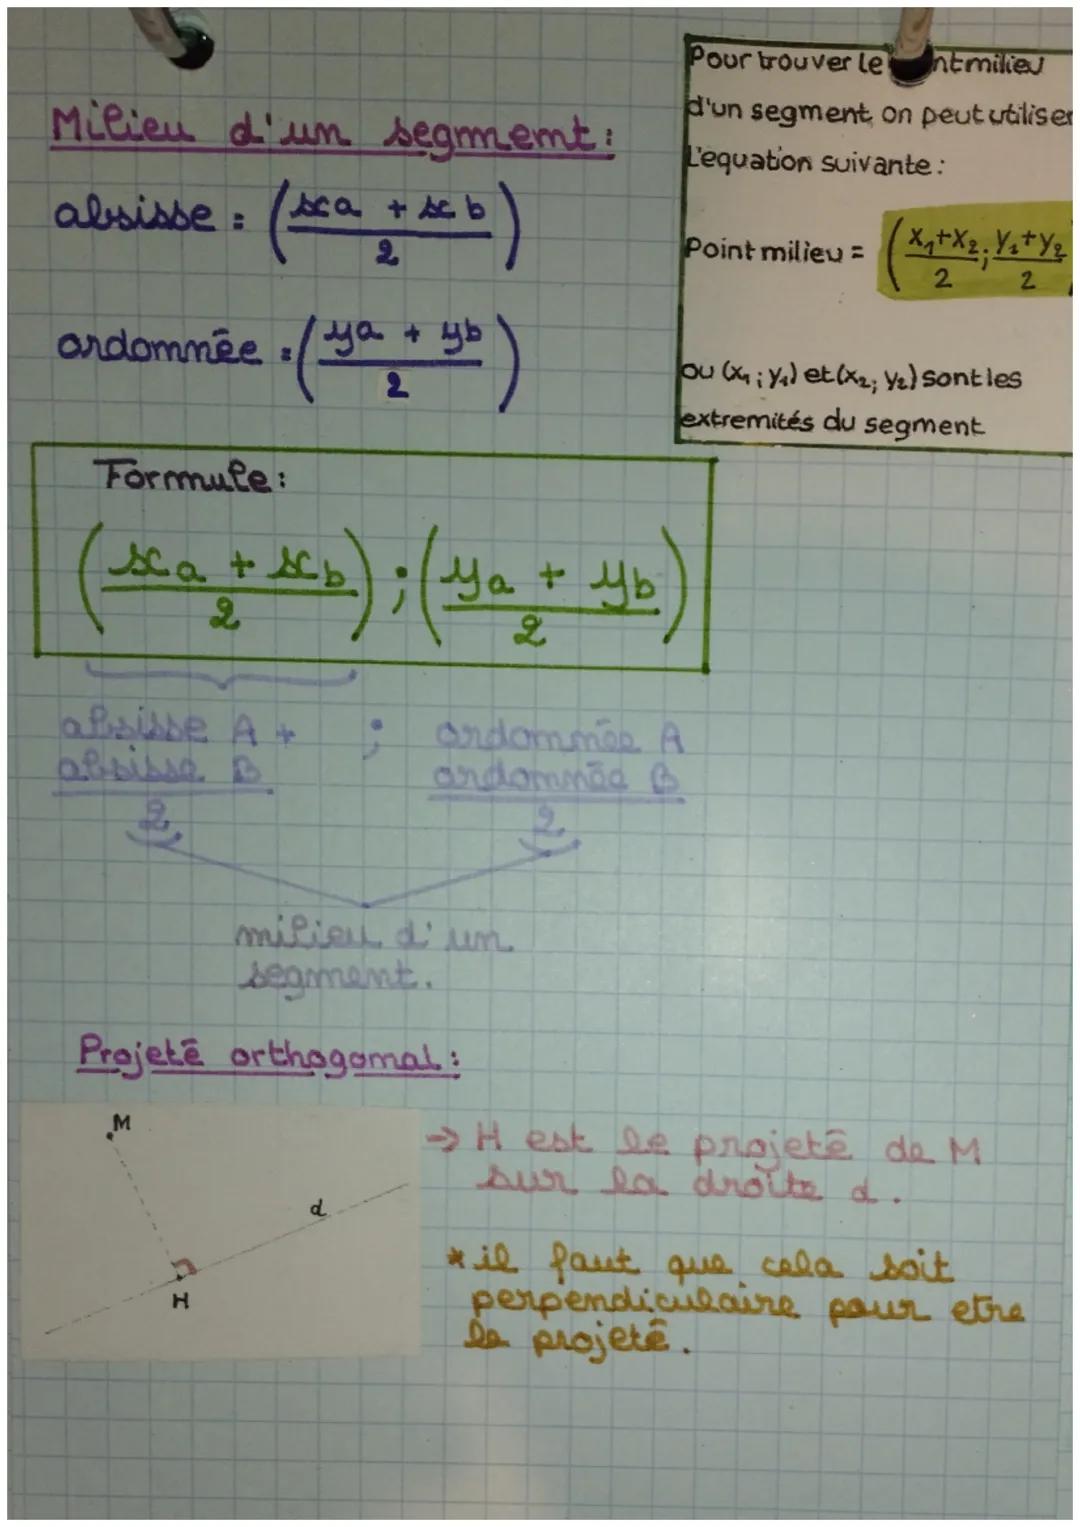 Milieu d'un segmemt :
absisse = (xa + xb / 2)
ordomnēe = (ya + yb / 2)
Pour trouver le ntmilieu
d'un segment, on peut utiliser
L'equation suivante :
Point milieu = (x₁+x₂ / 2 ; y₁+y₂ / 2)
ou (x₁ ; y₁) et (x₂ ; y₂) sont les
extremités du segment
Formule :
(xa + xb / 2) ; (ya + yb / 2)
absisse A + ; ordommée A
absisse B ordomnēe B
2 2
milieu d'un
segment.
Projetē orthogomal :
M
d
H
→ H est le projetē de M
sur la droite d.
* il faut que cela soit
perpendiculaire pour etre
le projetē.